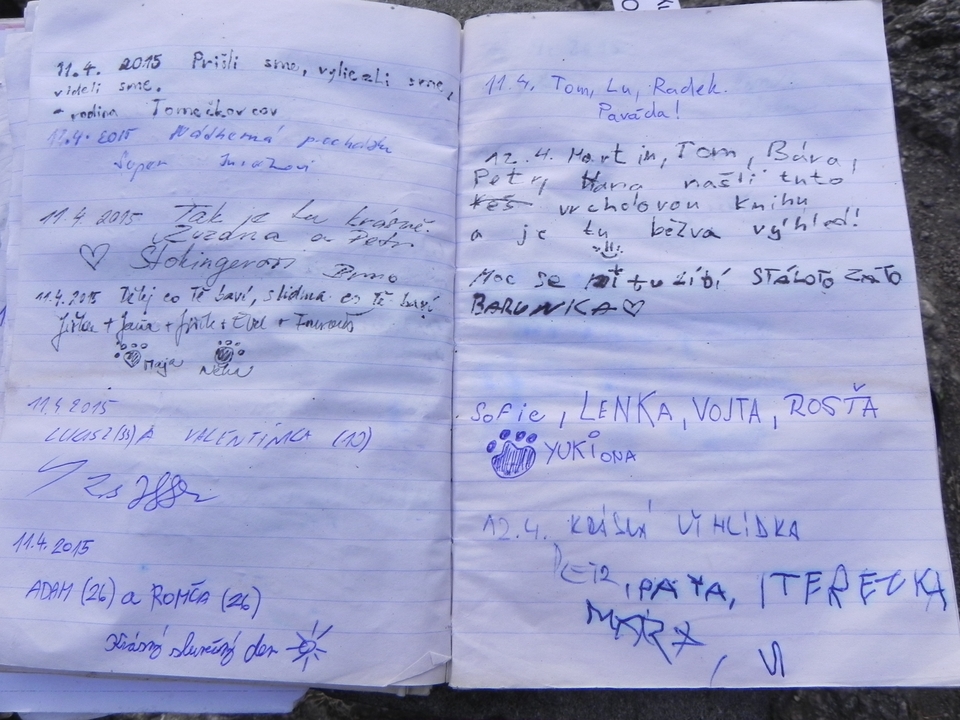 11.4. 2015 Prišli sme, vyliezli sme,
videli sme.
- rodina Tomečkovcov
11.4. 2015 Nádherná procházka
Super
11.4 2015 Tak je tu krásně.
Zuzana a Petr
Stokingerovi Brno
11.4.2015 Dělej co tě baví,
Maja
11.4 2015
LUKASZ(33) A VALENTINKA (10)
11.4.2015
ADAM (26) a ROMČA (26)
Krásný slunečný den
11.4. Tom, Lu, Radek.
Paráda!
12.4. Martin, Tom, Bára,
Petr, Hana našli tuto
keš vrcholovou knihu
a je tu bežva výhled!
Moc se mi tu líbí STÁLOTO ZATO
BARUNKA
SOFIE, LENKA, VOJTA, ROSŤA
YUKIONA
12.4. KRÁSNÁ VÝHLÍDKA
PETR, PAŤA, TEREZKA